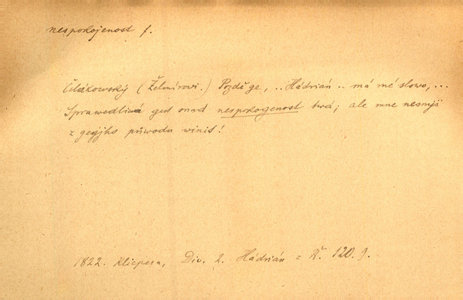 nespokojenost f.
Čelakowský (Želmírowi.) Pojdě ge, .. Hádrián .. má mé slowo, ...
Sprawedliwá gest snad nespokogenost twá; ale mne nesmíš
z gegjho půwodu winit!
1822. Klicpera, Div. 2. Hádrián z Ř. 120. 9.